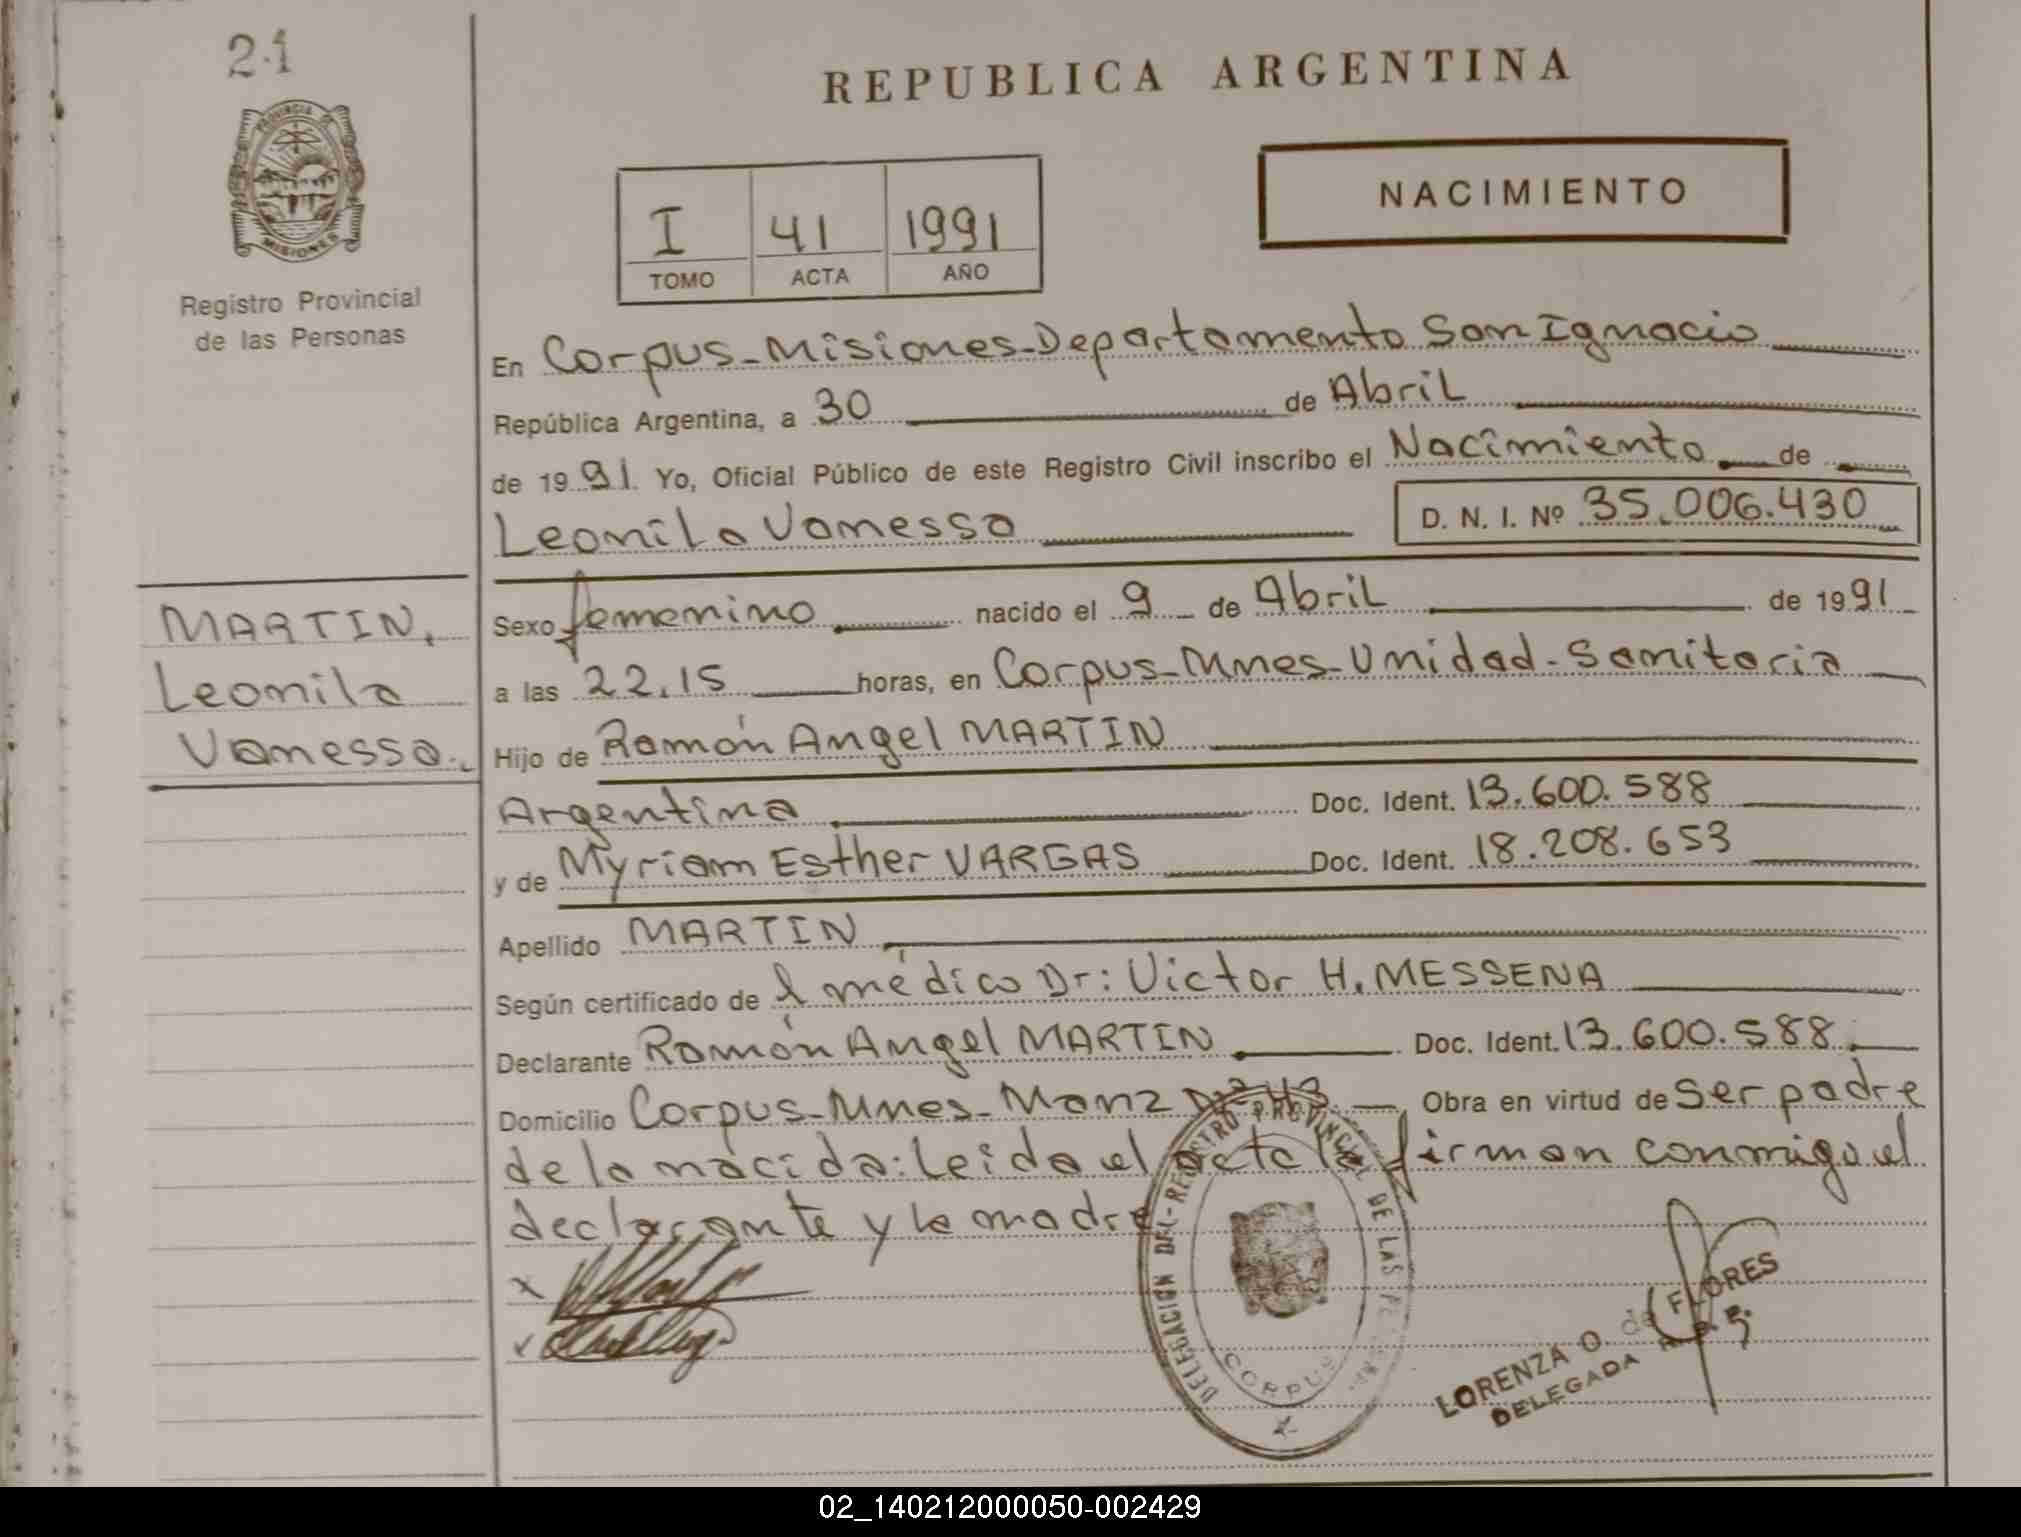 21
PROVINCIA DE
MISIONES
Registro Provincial
de las Personas
REPUBLICA ARGENTINA
NACIMIENTO
I 41 1991
TOMO ACTA AÑO
En Corpus-Misiones-Departamento San Ignacio
República Argentina, a 30 de Abril
de 1991. Yo, Oficial Público de este Registro Civil inscribo el Nacimiento de
Leonila Vanessa D. N. I. Nº 35.006.430
MARTIN,
Leonila
Vanessa.
Sexo femenino nacido el 9 de Abril de 1991
a las 22.15 horas, en Corpus-Mnes-Unidad-Sanitaria
Hijo de Ramón Angel MARTIN
Argentina Doc. Ident. 13.600.588
y de Myriam Esther VARGAS Doc. Ident. 18.208.653
Apellido MARTIN
Según certificado de l médico Dr: Victor H. MESSENA
Declarante Ramón Angel MARTIN Doc. Ident. 13.600.588.
Domicilio Corpus-Mnes-Manz Obra en virtud de ser padre
de la nacida: Leida el acta la firman conmigo el
declarante y la madre
DELEGACION DEL REGISTRO PROVINCIAL DE LAS
CORPUS
LORENZA O. de FLORES
DELEGADA
02_140212000050-002429